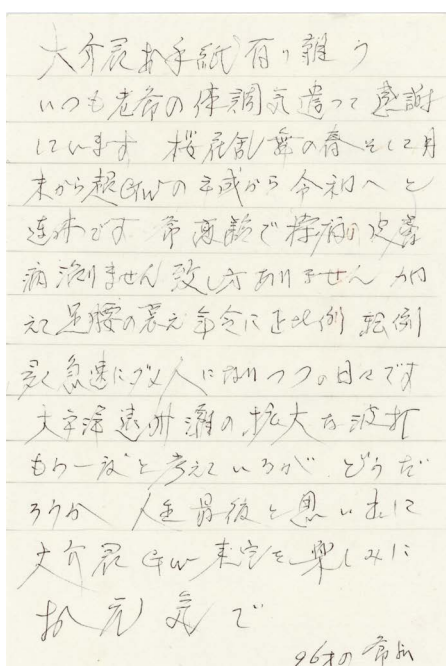 大介君お手紙有り難う
いつも老爺の体調気遣って感謝
しています 桜花乱舞の春そして月
末から超GWの平成から令和へと
連休です 爺 高齢で 皮膚
病 治りません致し方ありません 加
えて足腰の衰え年令に正比例 転倒
多く急速にダメ人になりつつの日々です
太平洋遠州灘の拡大な波打
もう一度と考えているが どうだ
ろうか 人生最後と思い
大介君GW来宅を楽しみに
お元気で
96才の爺